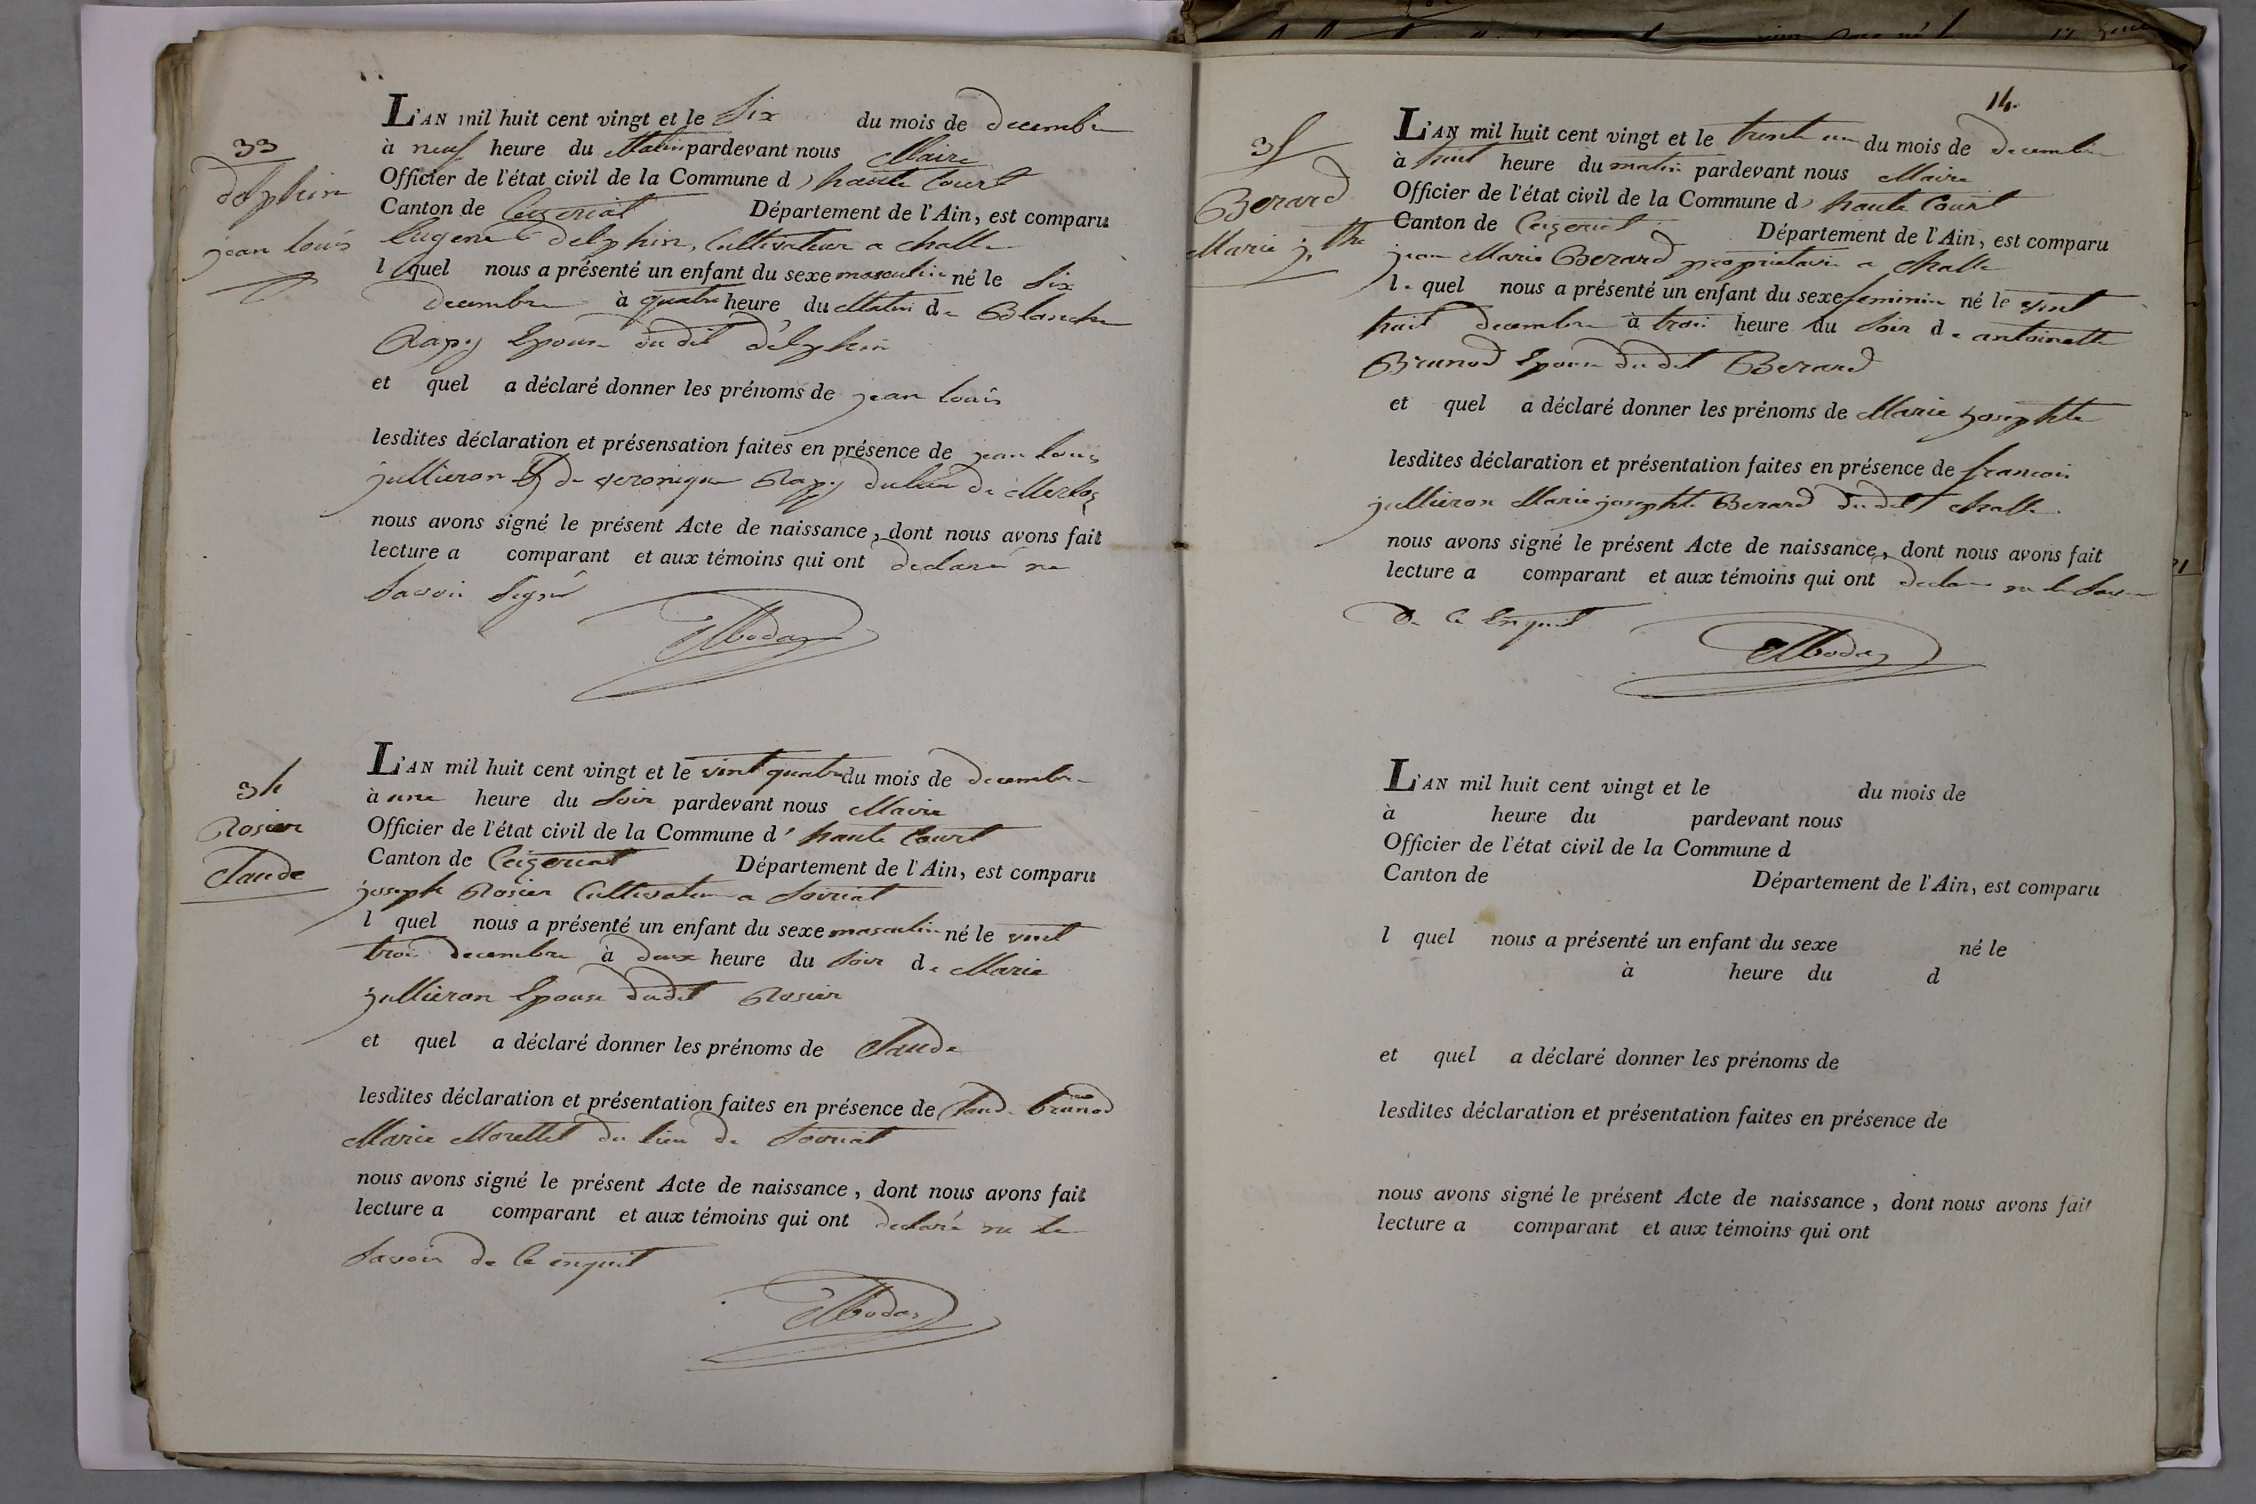 33
delphin
jean louis
L'AN mil huit cent vingt et le Six du mois de decembre
à neuf heure du Matin pardevant nous Maire
Officier de l'état civil de la Commune d' haute Court
Canton de Ceizeriat Département de l'Ain, est comparu
Eugene delphin, Cultivateur a challe
l quel nous a présenté un enfant du sexe masculin né le Six
decembre à quatre heure du Matin de Blanche
Rapy Epouse du dit delphin
et quel a déclaré donner les prénoms de jean louis
lesdites déclaration et présensation faites en présence de jean louis
jullieron & de veronique Rapy du lieu de
nous avons signé le présent Acte de naissance, dont nous avons fait
lecture a comparant et aux témoins qui ont declaré ne
Savoir Signé
34
Rosier
Claude
L'AN mil huit cent vingt et le vint quatre du mois de decembre
à une heure du Soir pardevant nous Maire
Officier de l'état civil de la Commune d' haute Court
Canton de Ceizeriat Département de l'Ain, est comparu
joseph Rosier Cultivateur a Soiriat
l quel nous a présenté un enfant du sexe masculin né le vint
troi decembre à deux heure du Soir de Marie
jullieron Epouse dudit Rosier
et quel a déclaré donner les prénoms de Claude
lesdites déclaration et présentation faites en présence de Claude brunod
Marie Morellet du lieu de Soiriat
nous avons signé le présent Acte de naissance, dont nous avons fait
lecture a comparant et aux témoins qui ont declaré ne le
Savoir de Ce enquit
14.
35
Berard
Marie j.the
L'AN mil huit cent vingt et le trente un du mois de decembre
à huit heure du matin pardevant nous Maire
Officier de l'état civil de la Commune d' haute Court
Canton de Ceizeriat Département de l'Ain, est comparu
jean Marie Berard proprietaire a challe
le quel nous a présenté un enfant du sexe feminin né le vint
huit decembre à troi heure du Soir de antoinette
Brunod Epouse du dit Berard
et quel a déclaré donner les prénoms de Marie josephte
lesdites déclaration et présentation faites en présence de francois
jullieron Marie josephte Berard du dit challe
nous avons signé le présent Acte de naissance, dont nous avons fait
lecture a comparant et aux témoins qui ont declare ne le Savoir
de Ce Enquit
L'AN mil huit cent vingt et le du mois de
à heure du pardevant nous
Officier de l'état civil de la Commune d
Canton de Département de l'Ain, est comparu
l quel nous a présenté un enfant du sexe né le
à heure du d
et quel a déclaré donner les prénoms de
lesdites déclaration et présentation faites en présence de
nous avons signé le présent Acte de naissance, dont nous avons fait
lecture a comparant et aux témoins qui ont